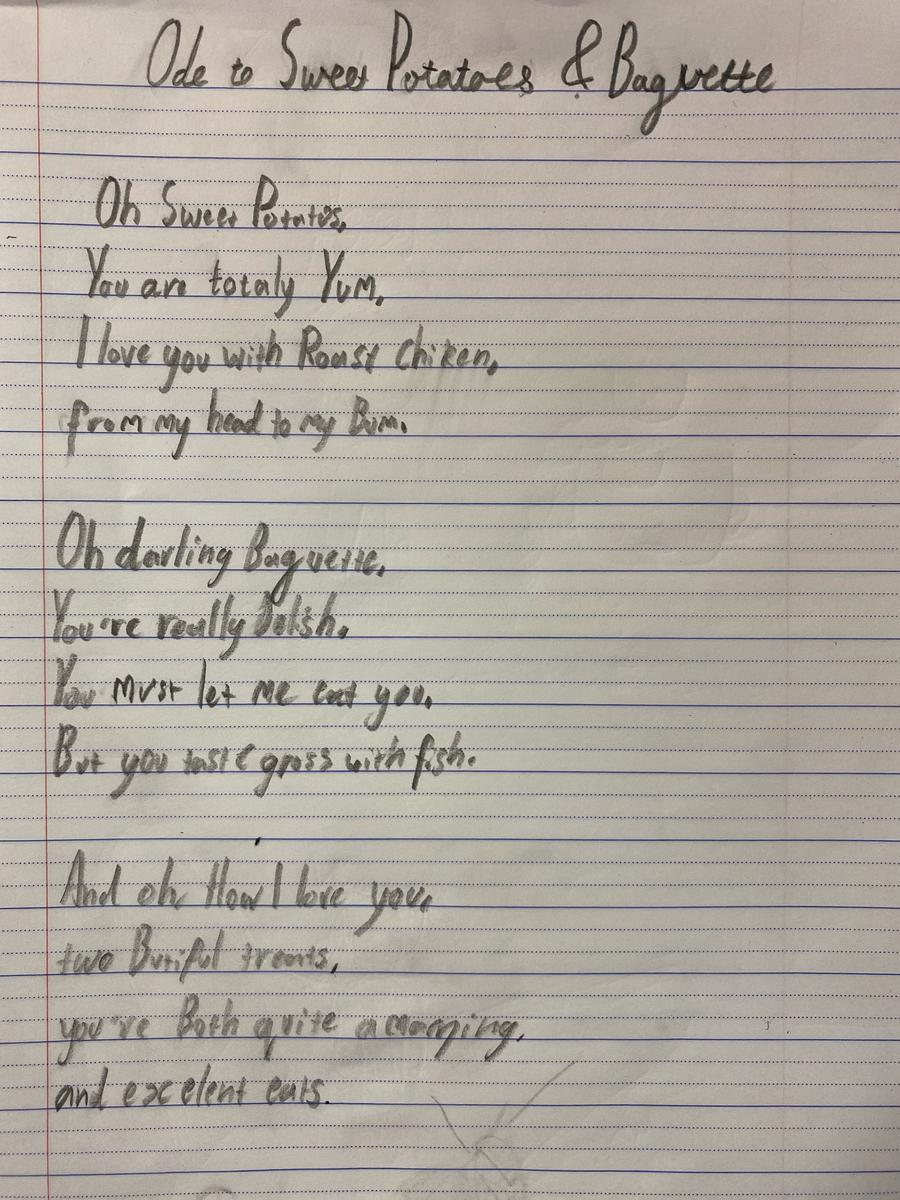 Ode to Sweet Potatoes & Baguette
Oh Sweet Potatos,
You are totaly Yum,
I love you with Roast Chiken,
from my head to my Bum.
Oh darling Baguette,
You're really Delish,
You must let me eat you,
But you taste gross with fish.
And oh, How I love you,
two Butiful treats,
you're Both quite amazing,
and excelent eats.